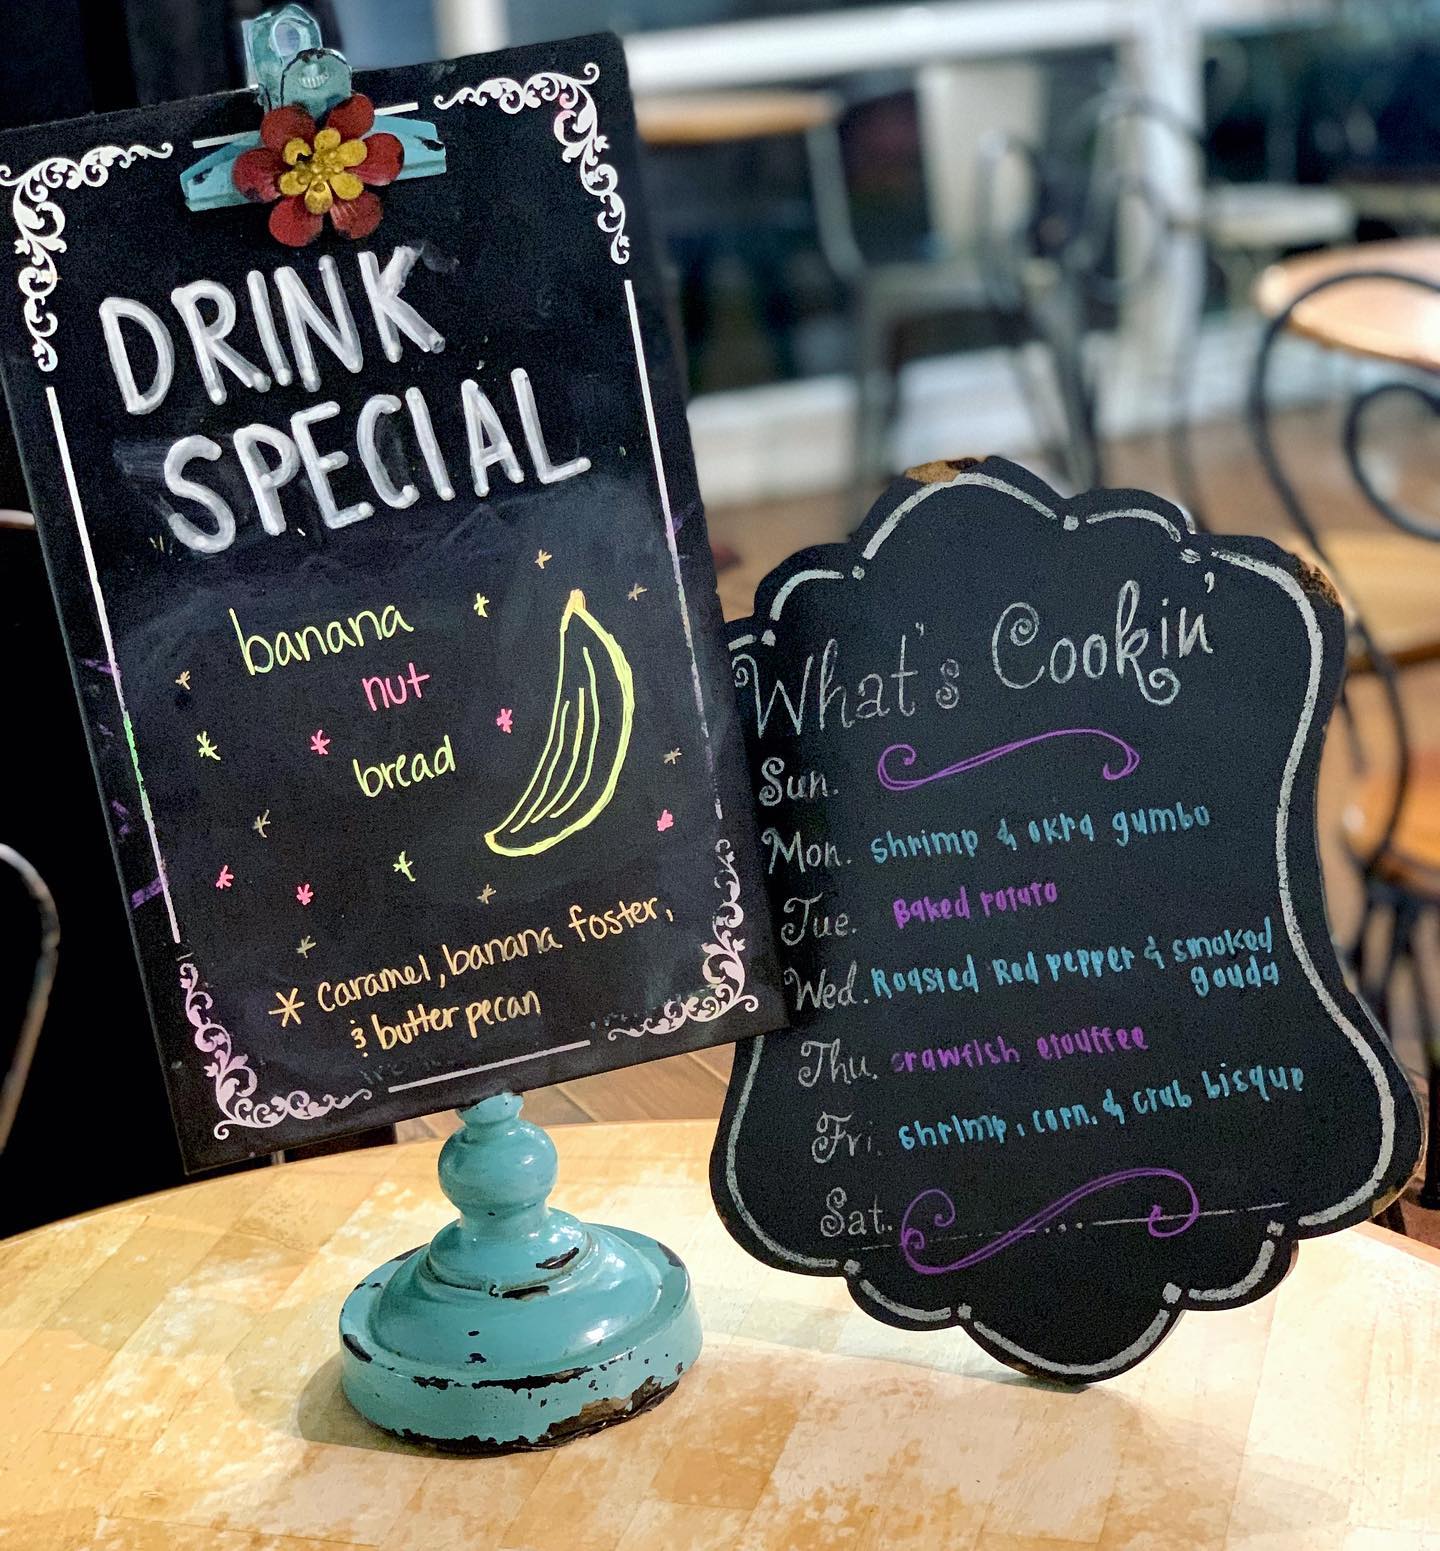 DRINK
SPECIAL
banana
nut
bread
* Caramel, banana foster,
& butter pecan
What's Cookin'
Sun.
Mon. shrimp & okra gumbo
Tue. Baked potato
Wed. Roasted Red pepper & smoked
gouda
Thu. crawfish etouffee
Fri. shrimp, corn, & crab bisque
Sat.